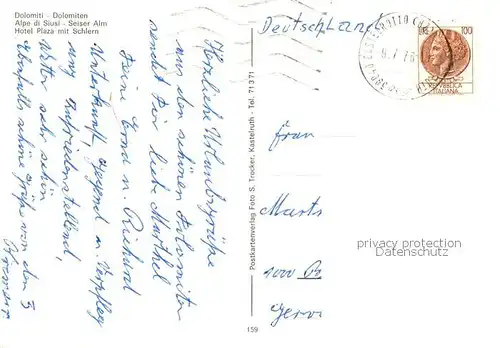 Dolomiti - Dolomiten
Alpe di Siusi - Seiser Alm
Hotel Plaza mit Schlern
Herzliche Urlaubsgrüße
aus den schönen Dolomiten
sendet Dir liebe Marthel
Deine Erna u. Richard
Unterkunft, Gegend u. Verpfleg
ung zufriedenstellend,
Wetter sehr schön
Ebenfalls schöne Grüße von den 3
Postkartenverlag Foto S. Trocker, Kastelruth - Tel. 71371
159
Deutschland
100
REPVBBLICA
ITALIANA
Frau
1000
privacy protection
Datenschutz